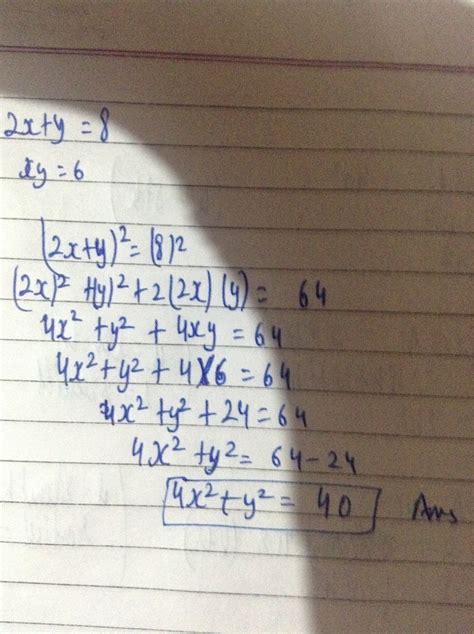 2x+y = 8
xy = 6
(2x+y)² = (8)²
(2x)² + (y)² + 2(2x)(y) = 64
4x² + y² + 4xy = 64
4x² + y² + 4×6 = 64
4x² + y² + 24 = 64
4x² + y² = 64 - 24
4x² + y² = 40 Ans